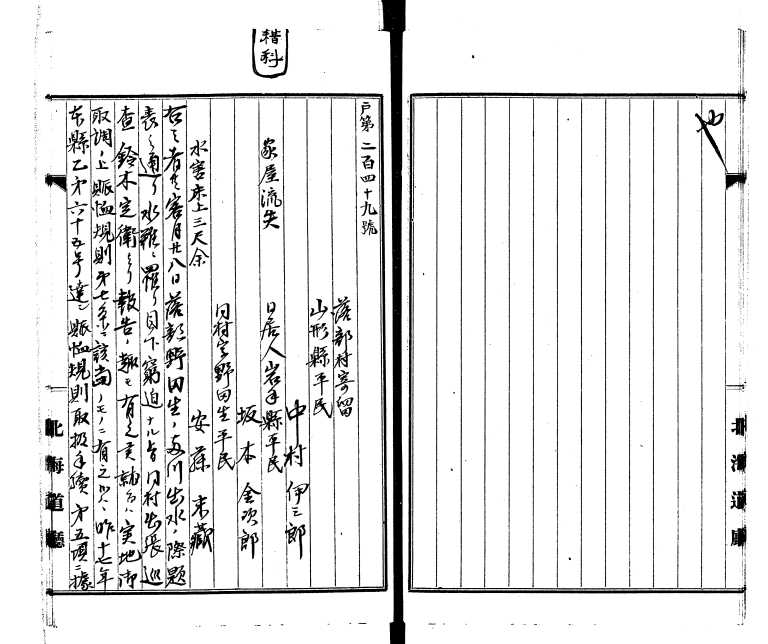 也
楷科
戸第二百四十九號
落部村寄留
山形縣平民
中村伊三郎
家屋流失
同居人岩手縣平民
坂本金次郎
同村字野田生平民
水害床上三尺余
安藤末藏
右之者共客月廿八日落部野田生ノ両川出水ノ際題
表之通リ水難ニ罹リ目下窮迫ナル旨同村出張巡
査鈴木定衛ヨリ報告ノ趣モ有之其節ハ実地御
取調ノ上賑恤規則第七条ニ該当ノモノニ有之候ハヽ昨十七年
本縣乙第六十五号達シ賑恤規則取扱手續第五項ニ據
北海道廳
北海道廳